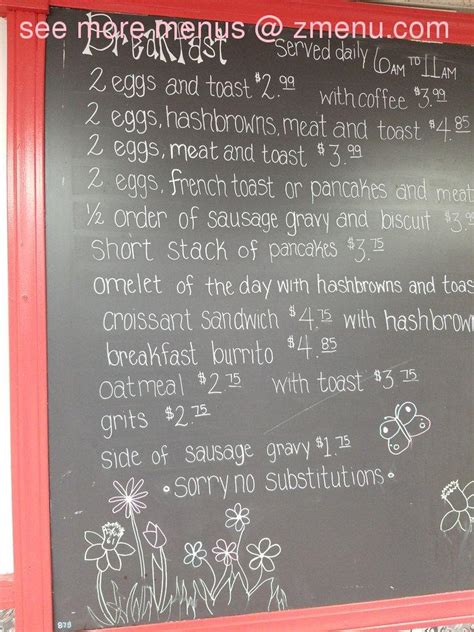 see more menus @ zmenu.com
Breakfast served daily 6AM TO 11AM
2 eggs and toast $2.99 with coffee $3.99
2 eggs, hashbrowns, meat and toast $4.85
2 eggs, meat and toast $3.99
2 eggs, french toast or pancakes and meat
1/2 order of sausage gravy and biscuit $3.
short stack of pancakes $3.75
omelet of the day with hashbrowns and toas
croissant sandwich $4.75 with hashbrown
breakfast burrito $4.85
oatmeal $2.75 with toast $3.75
grits $2.75
side of sausage gravy $1.75
•sorry no substitutions•
B7B
see more menus @ zmenu.com